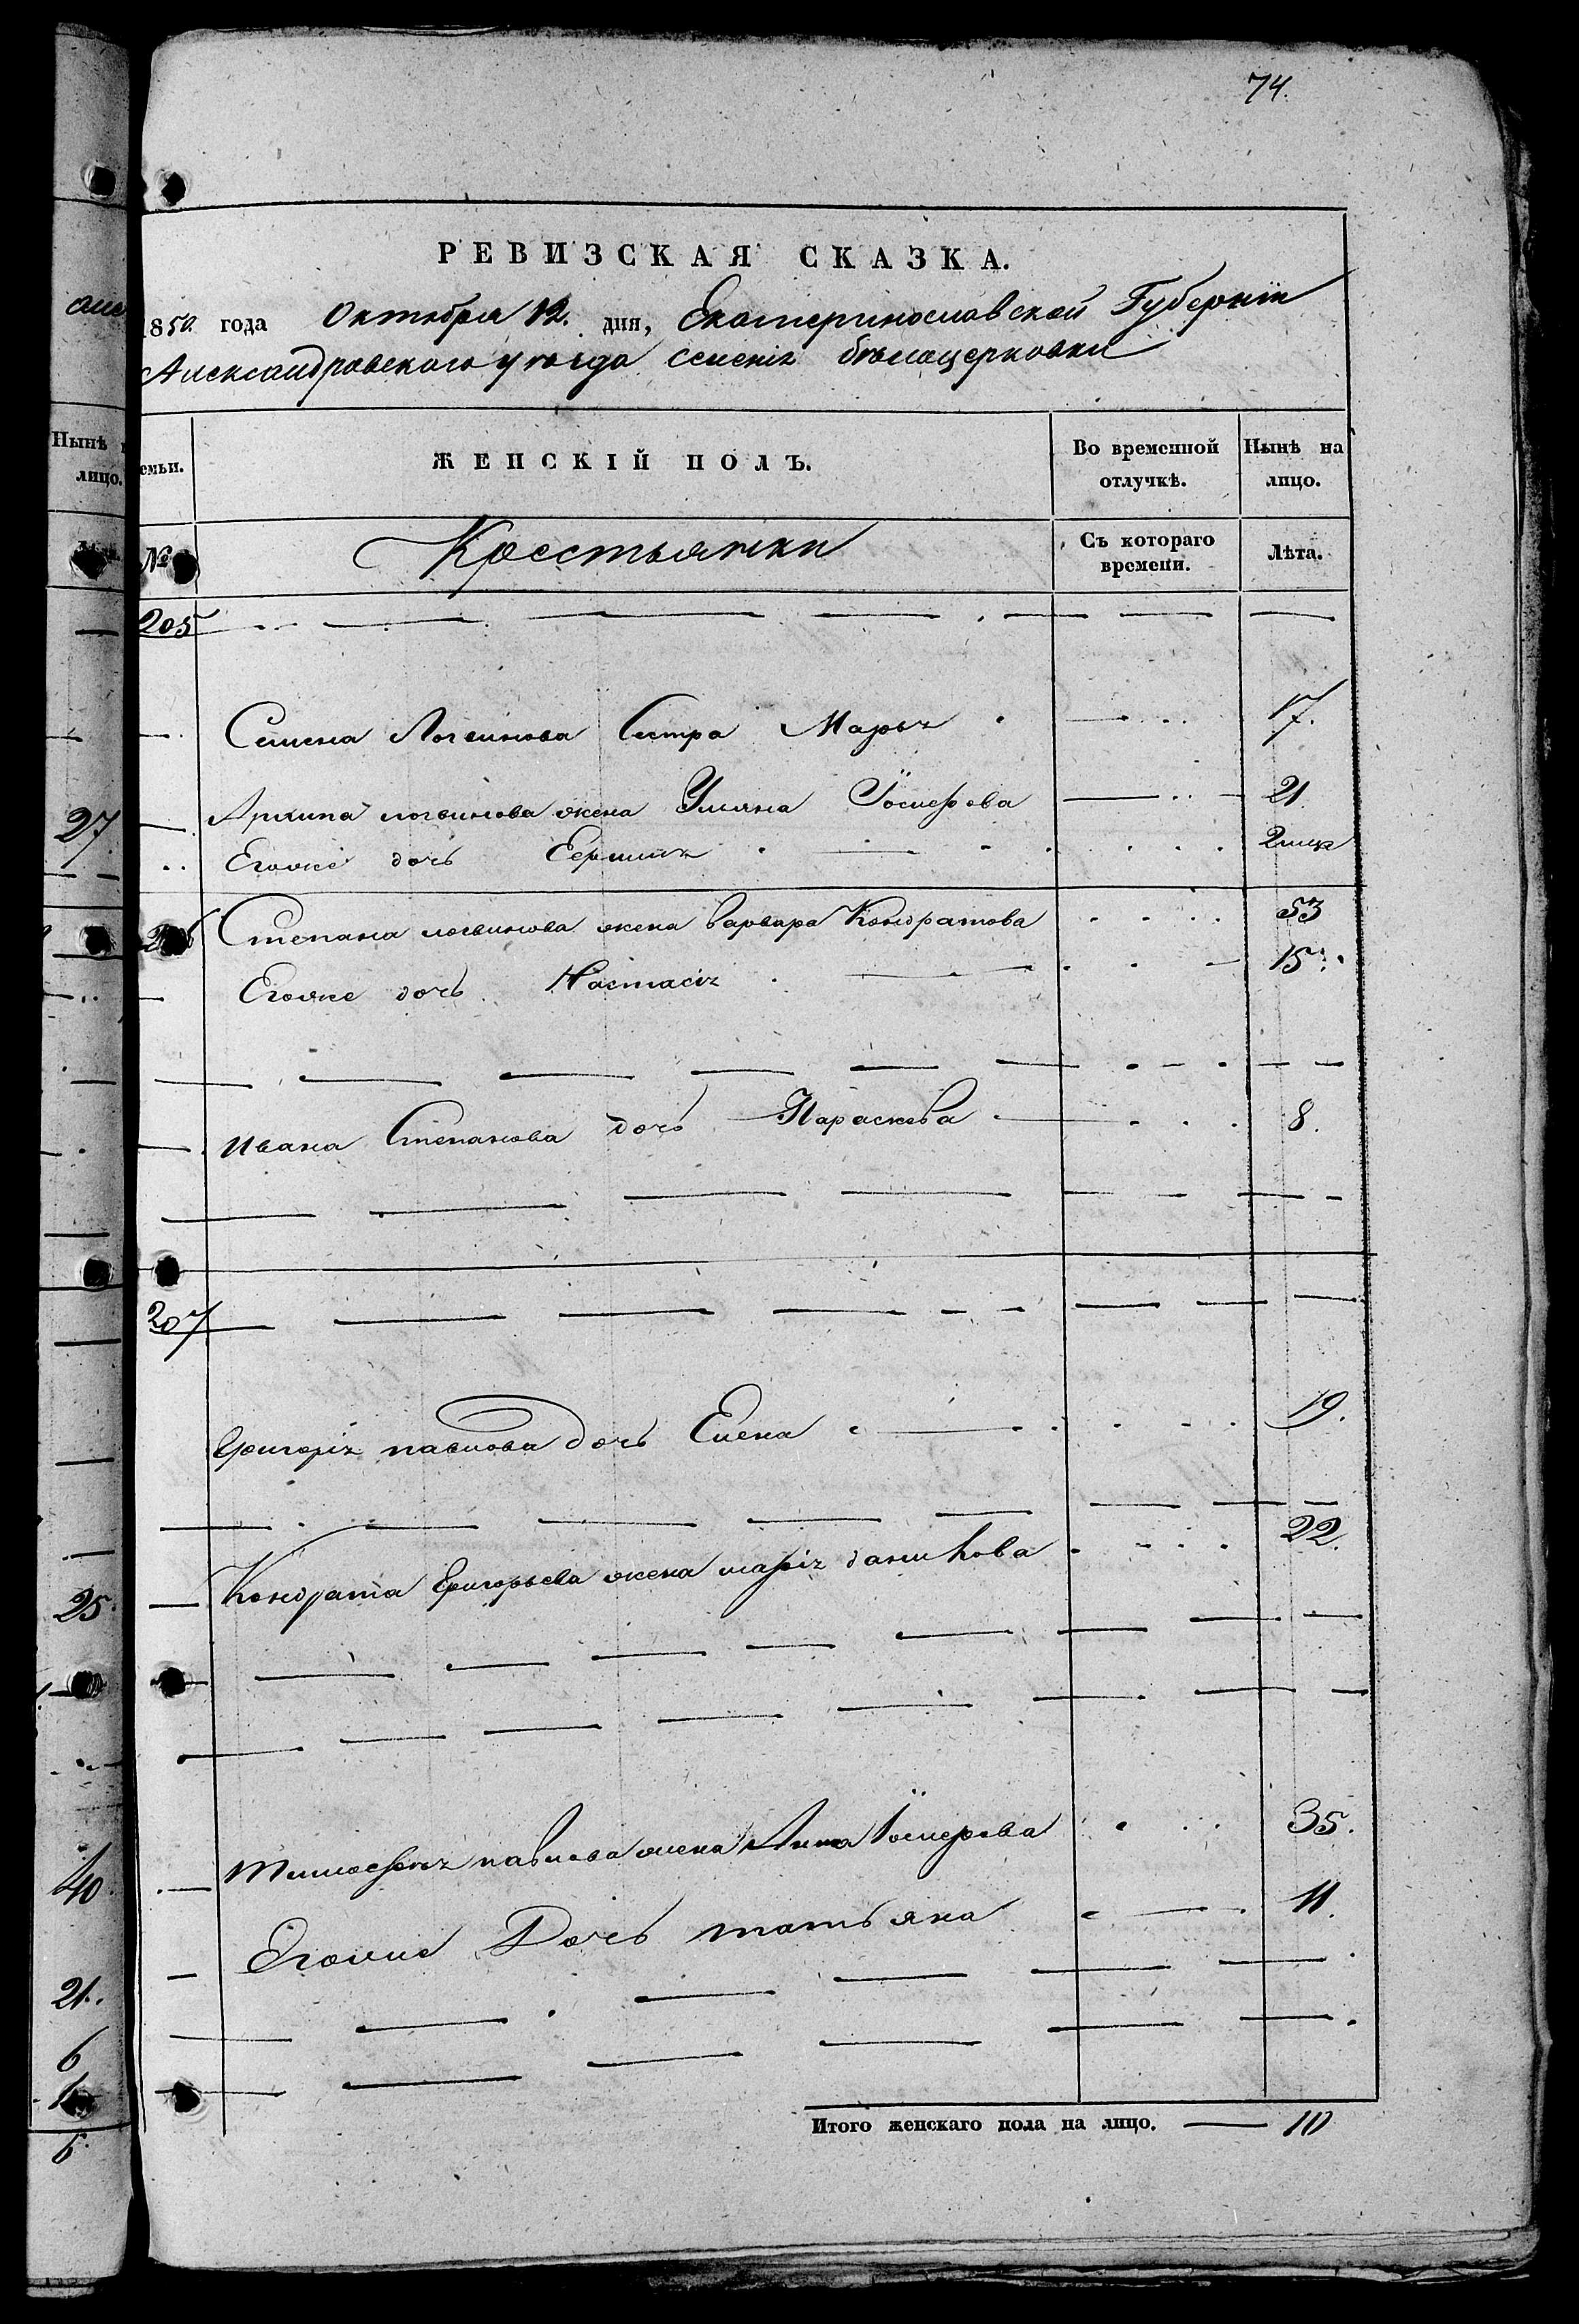 74.
РЕВИЗСКАЯ СКАЗКА.
1850 года Октября 12. дня, Екатеринославской Губерніи
Александровскаго уѣзда селенія бѣлоцерковки
Нынѣ
лицо.
емьи.
ЖЕНСКІЙ ПОЛЪ.
Во временной отлучкѣ.
Нынѣ на лицо.
№
Крестьянки
Съ котораго времени.
Лѣта.
205
Семена Логвинова Сестра Марья 17.
27.
Архипа логвинова жена Уляна Іосифова 21.
Егоже дочь 2 мця
Степана логвинова жена Варвара Кондратова 53
Егоже дочь Настасія 15.
Ивана Степанова дочь Параскева 8.
207
Григорія павлова дочь Елена 19.
25.
Кондрата Григорьева жена марія данилова 22.
Тимофея павлова жена Анна Іосифова 35.
40
Егоже Дочь татьяна 11.
21.
6
6.
Итого женскаго пола на лицо. 10